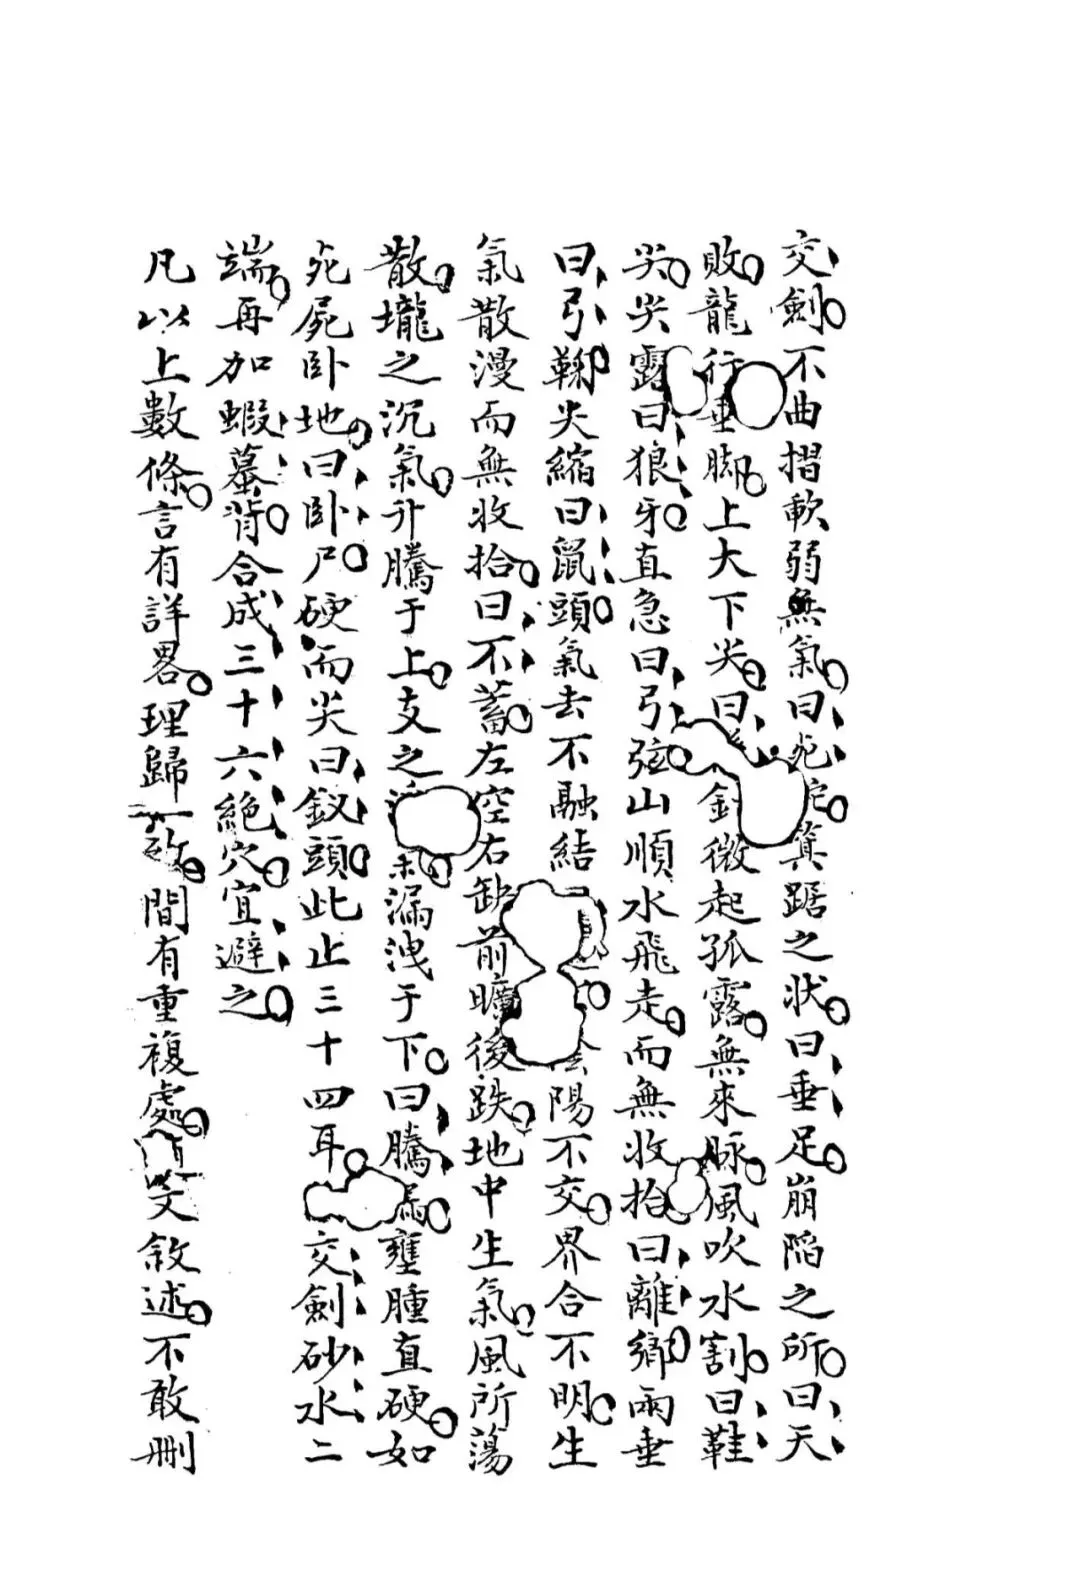 交劍不曲摺軟弱無氣曰死蛇箕踞之狀曰垂足崩陷之所曰天
敗龍行垂脚上大下尖曰針微起孤露無來脉風吹水割曰鞋
尖尖露曰狼牙直急曰引弦山順水飛走而無收拾曰離鄉兩垂
曰引鞠尖縮曰鼠頭氣去不融結陽不交界合不明生
氣散漫而無收拾曰不蓄左空右缺前曠後跌地中生氣風所蕩
散壠之沉氣升騰于上支之漏洩于下曰騰漏壅腫直硬如
死屍卧地曰卧尸硬而尖曰釵頭此止三十四耳交劍砂水二
端再加蝦蟇背合成三十六絕穴宜避之
凡以上數條言有詳畧理歸一致間有重複處文敘述不敢刪